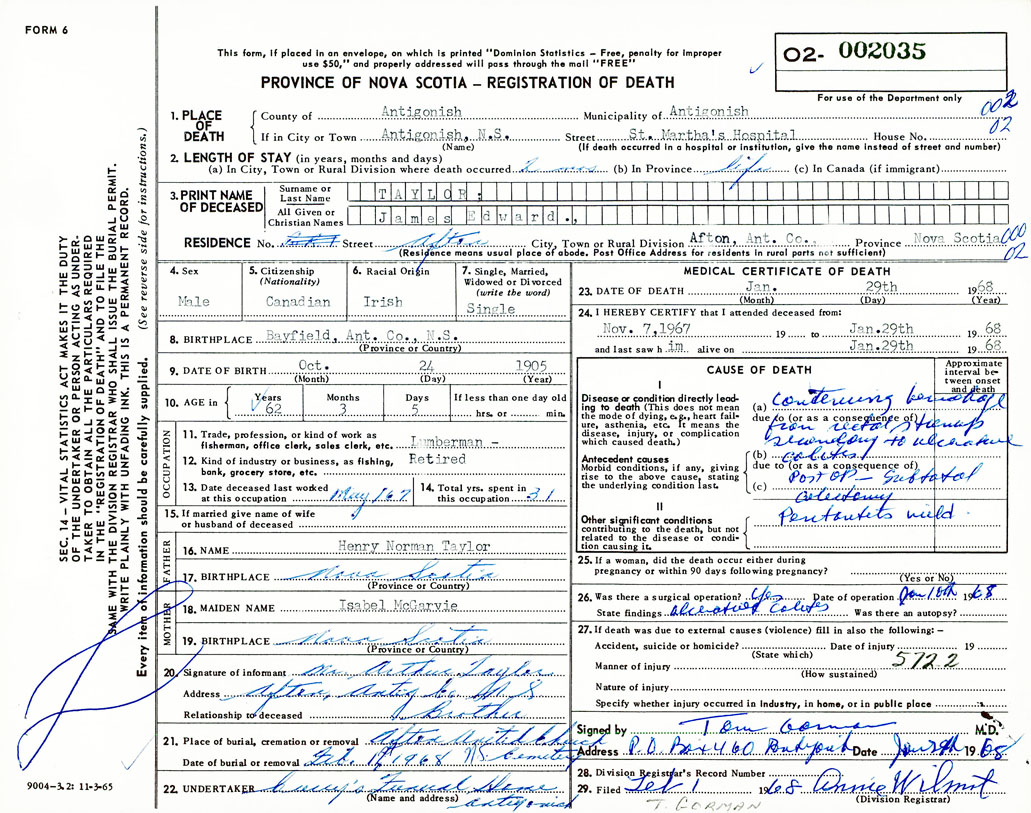 FORM 6
This form, if placed in an envelope, on which is printed "Dominion Statistics – Free, penalty for improper
use $50," and properly addressed will pass through the mail "FREE"
PROVINCE OF NOVA SCOTIA – REGISTRATION OF DEATH
02- 002035
For use of the Department only
002
02
SEC. 14 – VITAL STATISTICS ACT MAKES IT THE DUTY
OF THE UNDERTAKER OR PERSON ACTING AS UNDER-
TAKER TO OBTAIN ALL THE PARTICULARS REQUIRED
IN THE "REGISTRATION OF DEATH" AND TO FILE THE
SAME WITH THE DIVISION REGISTRAR WHO SHALL ISSUE THE BURIAL PERMIT.
WRITE PLAINLY WITH UNFADING INK. THIS IS A PERMANENT RECORD.
Every item of information should be carefully supplied. (See reverse side for instructions.)
1. PLACE OF DEATH
County of Antigonish Municipality of Antigonish
If in City or Town Antigonish, N.S. Street St. Martha's Hospital House No.
(Name) (If death occurred in a hospital or institution, give the name instead of street and number)
2. LENGTH OF STAY (in years, months and days)
(a) In City, Town or Rural Division where death occurred 2 mos (b) In Province life (c) In Canada (if immigrant)
3. PRINT NAME OF DECEASED
Surname or Last Name TAYLOR:
All Given or Christian Names James Edward.,
RESIDENCE No. Street Afton City, Town or Rural Division Afton, Ant. Co., Province Nova Scotia 000
02
(Residence means usual place of abode. Post Office Address for residents in rural parts not sufficient)
4. Sex
Male
5. Citizenship
(Nationality)
Canadian
6. Racial Origin
Irish
7. Single, Married,
Widowed or Divorced
(write the word)
Single
8. BIRTHPLACE Bayfield, Ant. Co., N.S.
(Province or Country)
9. DATE OF BIRTH Oct. 24 1905
(Month) (Day) (Year)
10. AGE in Years 62 Months 3 Days 5 If less than one day old
hrs. or min.
OCCUPATION
11. Trade, profession, or kind of work as
fisherman, office clerk, sales clerk, etc. Lumberman –
12. Kind of industry or business, as fishing,
bank, grocery store, etc. Retired
13. Date deceased last worked
at this occupation May /67
14. Total yrs. spent in
this occupation 31
15. If married give name of wife
or husband of deceased
FATHER
16. NAME Henry Norman Taylor
17. BIRTHPLACE Nova Scotia
(Province or Country)
MOTHER
18. MAIDEN NAME Isabel McGarvie
19. BIRTHPLACE Nova Scotia
(Province or Country)
20. Signature of informant Arthur Taylor
Address Afton, Antig Co N S
Relationship to deceased Brother
21. Place of burial, cremation or removal Afton United Church
Date of burial or removal Feb. 1st 1968 N S Cemetery
22. UNDERTAKER Funeral Home
(Name and address) Antigonish
9004-3.2: 11-3-65
MEDICAL CERTIFICATE OF DEATH
23. DATE OF DEATH Jan. 29th 1968
(Month) (Day) (Year)
24. I HEREBY CERTIFY that I attended deceased from:
Nov. 7,1967 19 to Jan.29th 19 68
and last saw h im alive on Jan.29th 19 68
CAUSE OF DEATH
Approximate
interval be-
tween onset
and death
I
Disease or condition directly lead-
ing to death (This does not mean
the mode of dying, e.g., heart fail-
ure, asthenia, etc. It means the
disease, injury, or complication
which caused death.)
(a) Continuing
due to (or as a consequence of)
from rectal stump
secondary to ulcerative
(b) colitis
due to (or as a consequence of)
(c) Post OP – Subtotal
Colectomy
Antecedent causes
Morbid conditions, if any, giving
rise to the above cause, stating
the underlying condition last.
II
Other significant conditions
contributing to the death, but not
related to the disease or condi-
tion causing it.
25. If a woman, did the death occur either during
pregnancy or within 90 days following pregnancy?
(Yes or No)
26. Was there a surgical operation? Yes Date of operation 1968
State findings ulcerative colitis Was there an autopsy?
27. If death was due to external causes (violence) fill in also the following: –
Accident, suicide or homicide? Date of injury 19
(State which)
5722
Manner of injury
(How sustained)
Nature of injury
Specify whether injury occurred in Industry, in home, or in public place
Signed by Tom Gorman M.D.
Address P.O. Box 460 Date Jan 29th 1968
28. Division Registrar's Record Number
29. Filed Feb 1 1968 Annie Wilmot
(Division Registrar)
T. GORMAN